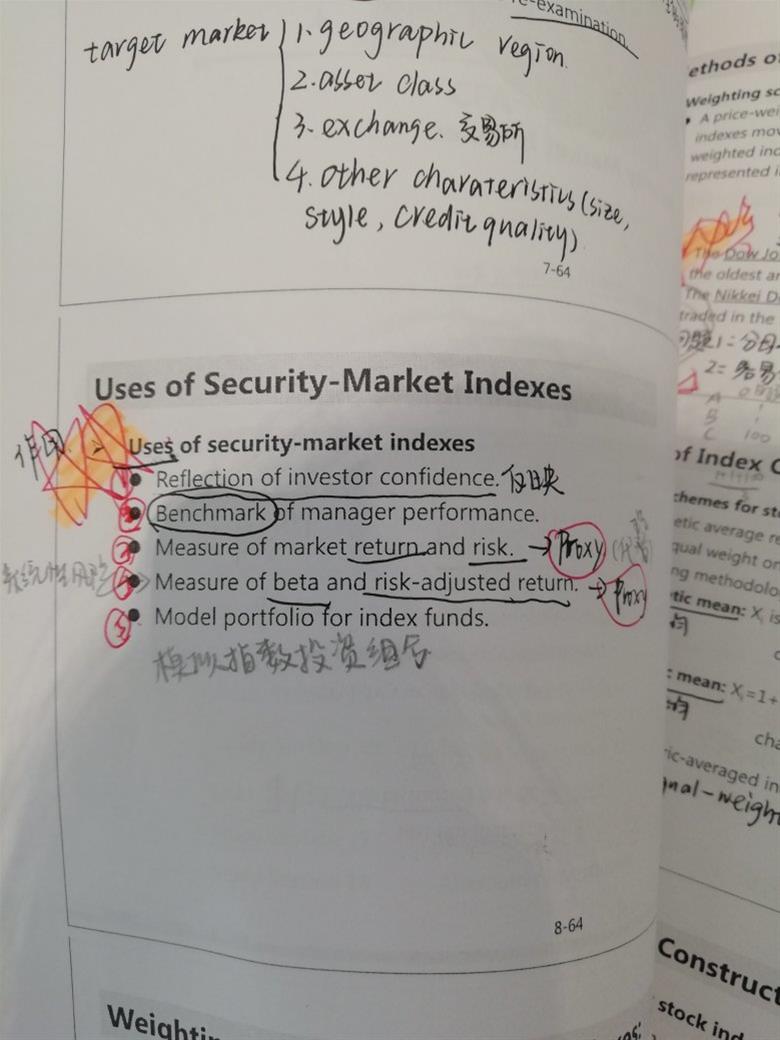 re-examination
target market
1. geographic region.
2. asset class
3. exchange. 交易所
4. other charateristics (size,
style, credit quality)
7-64
Uses of Security-Market Indexes
作用
Uses of security-market indexes
① Reflection of investor confidence. 反映
② Benchmark of manager performance.
③ Measure of market return and risk. → Proxy
系统性风险 ④ Measure of beta and risk-adjusted return. → Proxy
⑤ Model portfolio for index funds.
模拟指数投资组合
8-64
Weightin
ethods o
Weighting sc
• A price-wei
indexes mov
weighted ind
represented i
The Dow Jo
the oldest a
The Nikkei D
traded in the
of Index C
chemes for st
etic average re
qual weight on
ng methodolo
tic mean: X is
c mean: X =1+
cha
ric-averaged in
qual-weigh
Construct
stock ind